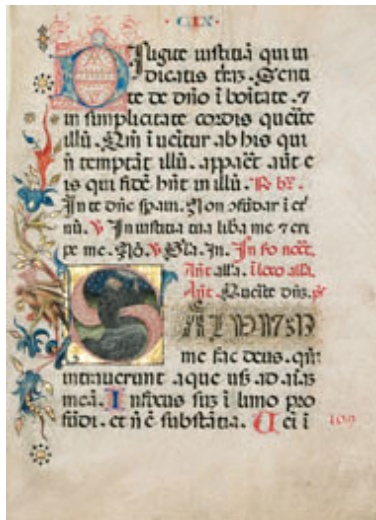 · CIX ·
Diligite iustitiā qui iu
dicatis trā3. Senti
te de dño ī boītate. ⁊
in simplicitate cordis querite
illū. Qm̄ īuēitur ab his qui
ñ temptāt illū. apparet aūt e
is qui fidē hñt in illū. R br.
In te dñe spaui. Non ɔfūdar ī et
nū. V In iustitia tua liba me ⁊ eri
pe me. Nō. V Gla. In.
In no noct.
Añt. alla. ī loco alla.
Añt. Querite dñ3. ps
SALVVM
me fac deus. qm̄
intrauerunt aque usq3 ad aīa3
meā. Infixus su3 ī limo pro
fūdi. et ñ ē substātia. Uei ī
109